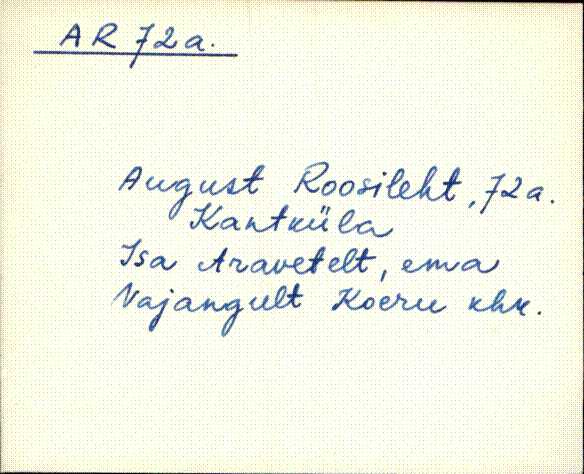 AR 72a.
August Roosileht, 72a.
Kantküla
Isa Aravetelt, ema
Vajangult Koeru khk.